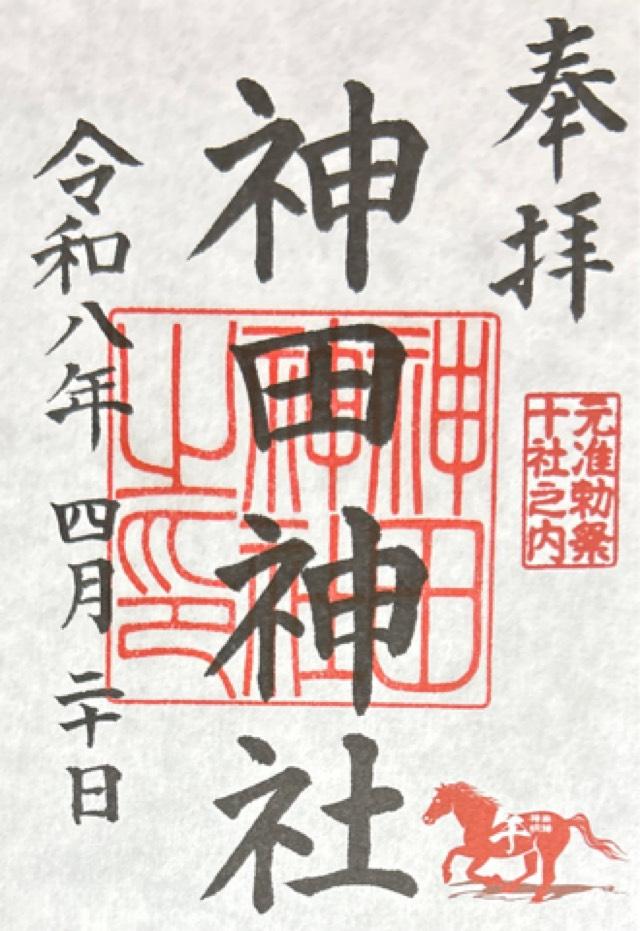 奉拝
元准勅祭
十社之内
神田神社
神田
神社
之印
令和八年 四月 二十日
午